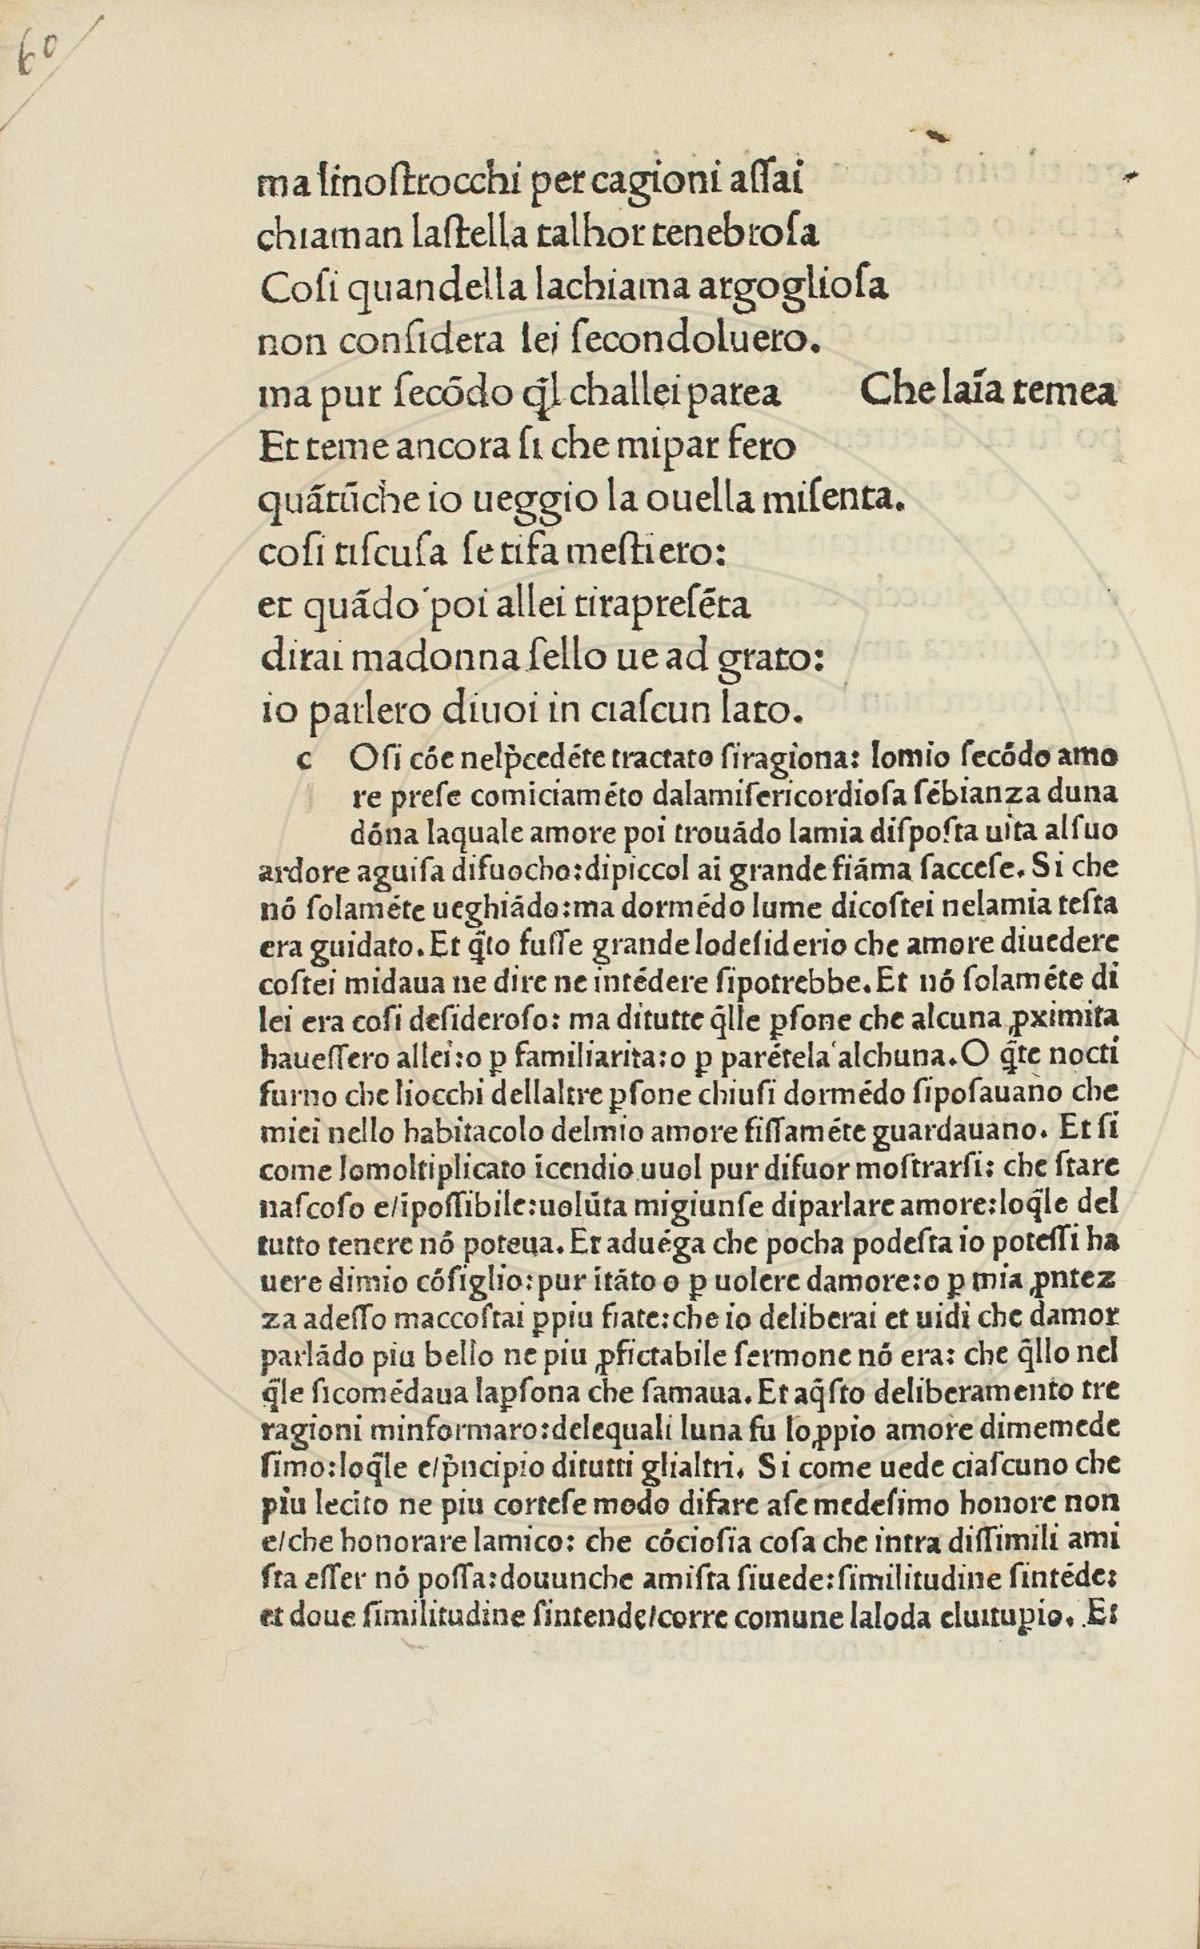 60
ma linoſtrocchi per cagioni aſſai
chiaman laſtella talhor tenebroſa
Coſi quandella lachiama argoglioſa
non conſidera lei ſecondoluero.
ma pur ſecōdo q̄l challei parea Che laīa temea
Et teme ancora ſi che mipar fero
quātūche io ueggio la ouella miſenta.
coſi tiſcuſa ſe tifa meſtiero:
et quādo poi allei tirapreſēta
dirai madonna ſello ue ad grato:
io parlero diuoi in ciaſcun lato.
c Oſi cóe nelp̄cedéte tractato ſiragiona: lomio ſecódo amo
re preſe comiciaméto dalamiſericordioſa ſébianza duna
dóna laquale amore poi trouādo lamia diſpoſta uita alſuo
ardore aguiſa difuocho: dipiccol ai grande fiáma ſacceſe. Si che
nó ſolaméte ueghiádo: ma dormédo lume dicoſtei nelamia teſta
era guidato. Et q̄to fuſſe grande lodeſiderio che amore diuedere
coſtei midaua ne dire ne intédere ſipotrebbe. Et nó ſolaméte di
lei era coſi deſideroſo: ma ditutte q̄lle ꝑſone che alcuna ꝓximita
haueſſero allei: o ꝑ familiarita: o ꝑ parétela alchuna. O q̄te nocti
furno che liocchi dellaltre ꝑſone chiuſi dormédo ſipoſauano che
miei nello habitacolo delmio amore fiſſaméte guardauano. Et ſi
come lomoltiplicato īcendio uuol pur difuor moſtrarſi: che ſtare
naſcoſo e/īpoſſibile: uolūta migiunſe diparlare amore: loq̄le del
tutto tenere nó poteua. Et aduéga che pocha podeſta io poteſſi ha
uere dimio cóſiglio: pur itāto o ꝑ uolere damore: o ꝑ mia ꝓntez
za adeſſo maccoſtai ꝑpiu fiate: che io deliberai et uidi che damor
parlādo piu bello ne piu ꝓfictabile ſermone nó era: che q̄llo nel
q̄le ſicomédaua laꝑſona che ſamaua. Et aq̄ſto deliberamento tre
ragioni minformaro: delequali luna fu loꝓpio amore dimemede
ſimo: loq̄le e/p̄ncipio ditutti glialtri. Si come uede ciaſcuno che
piu lecito ne piu corteſe modo difare aſe medeſimo honore non
e/che honorare lamico: che cócioſia coſa che intra diſſimili ami
ſta eſſer nó poſſa: douunche amiſta ſiuede: ſimilitudine ſintéde:
et doue ſimilitudine ſintende/corre comune laloda eluituꝑio. Et